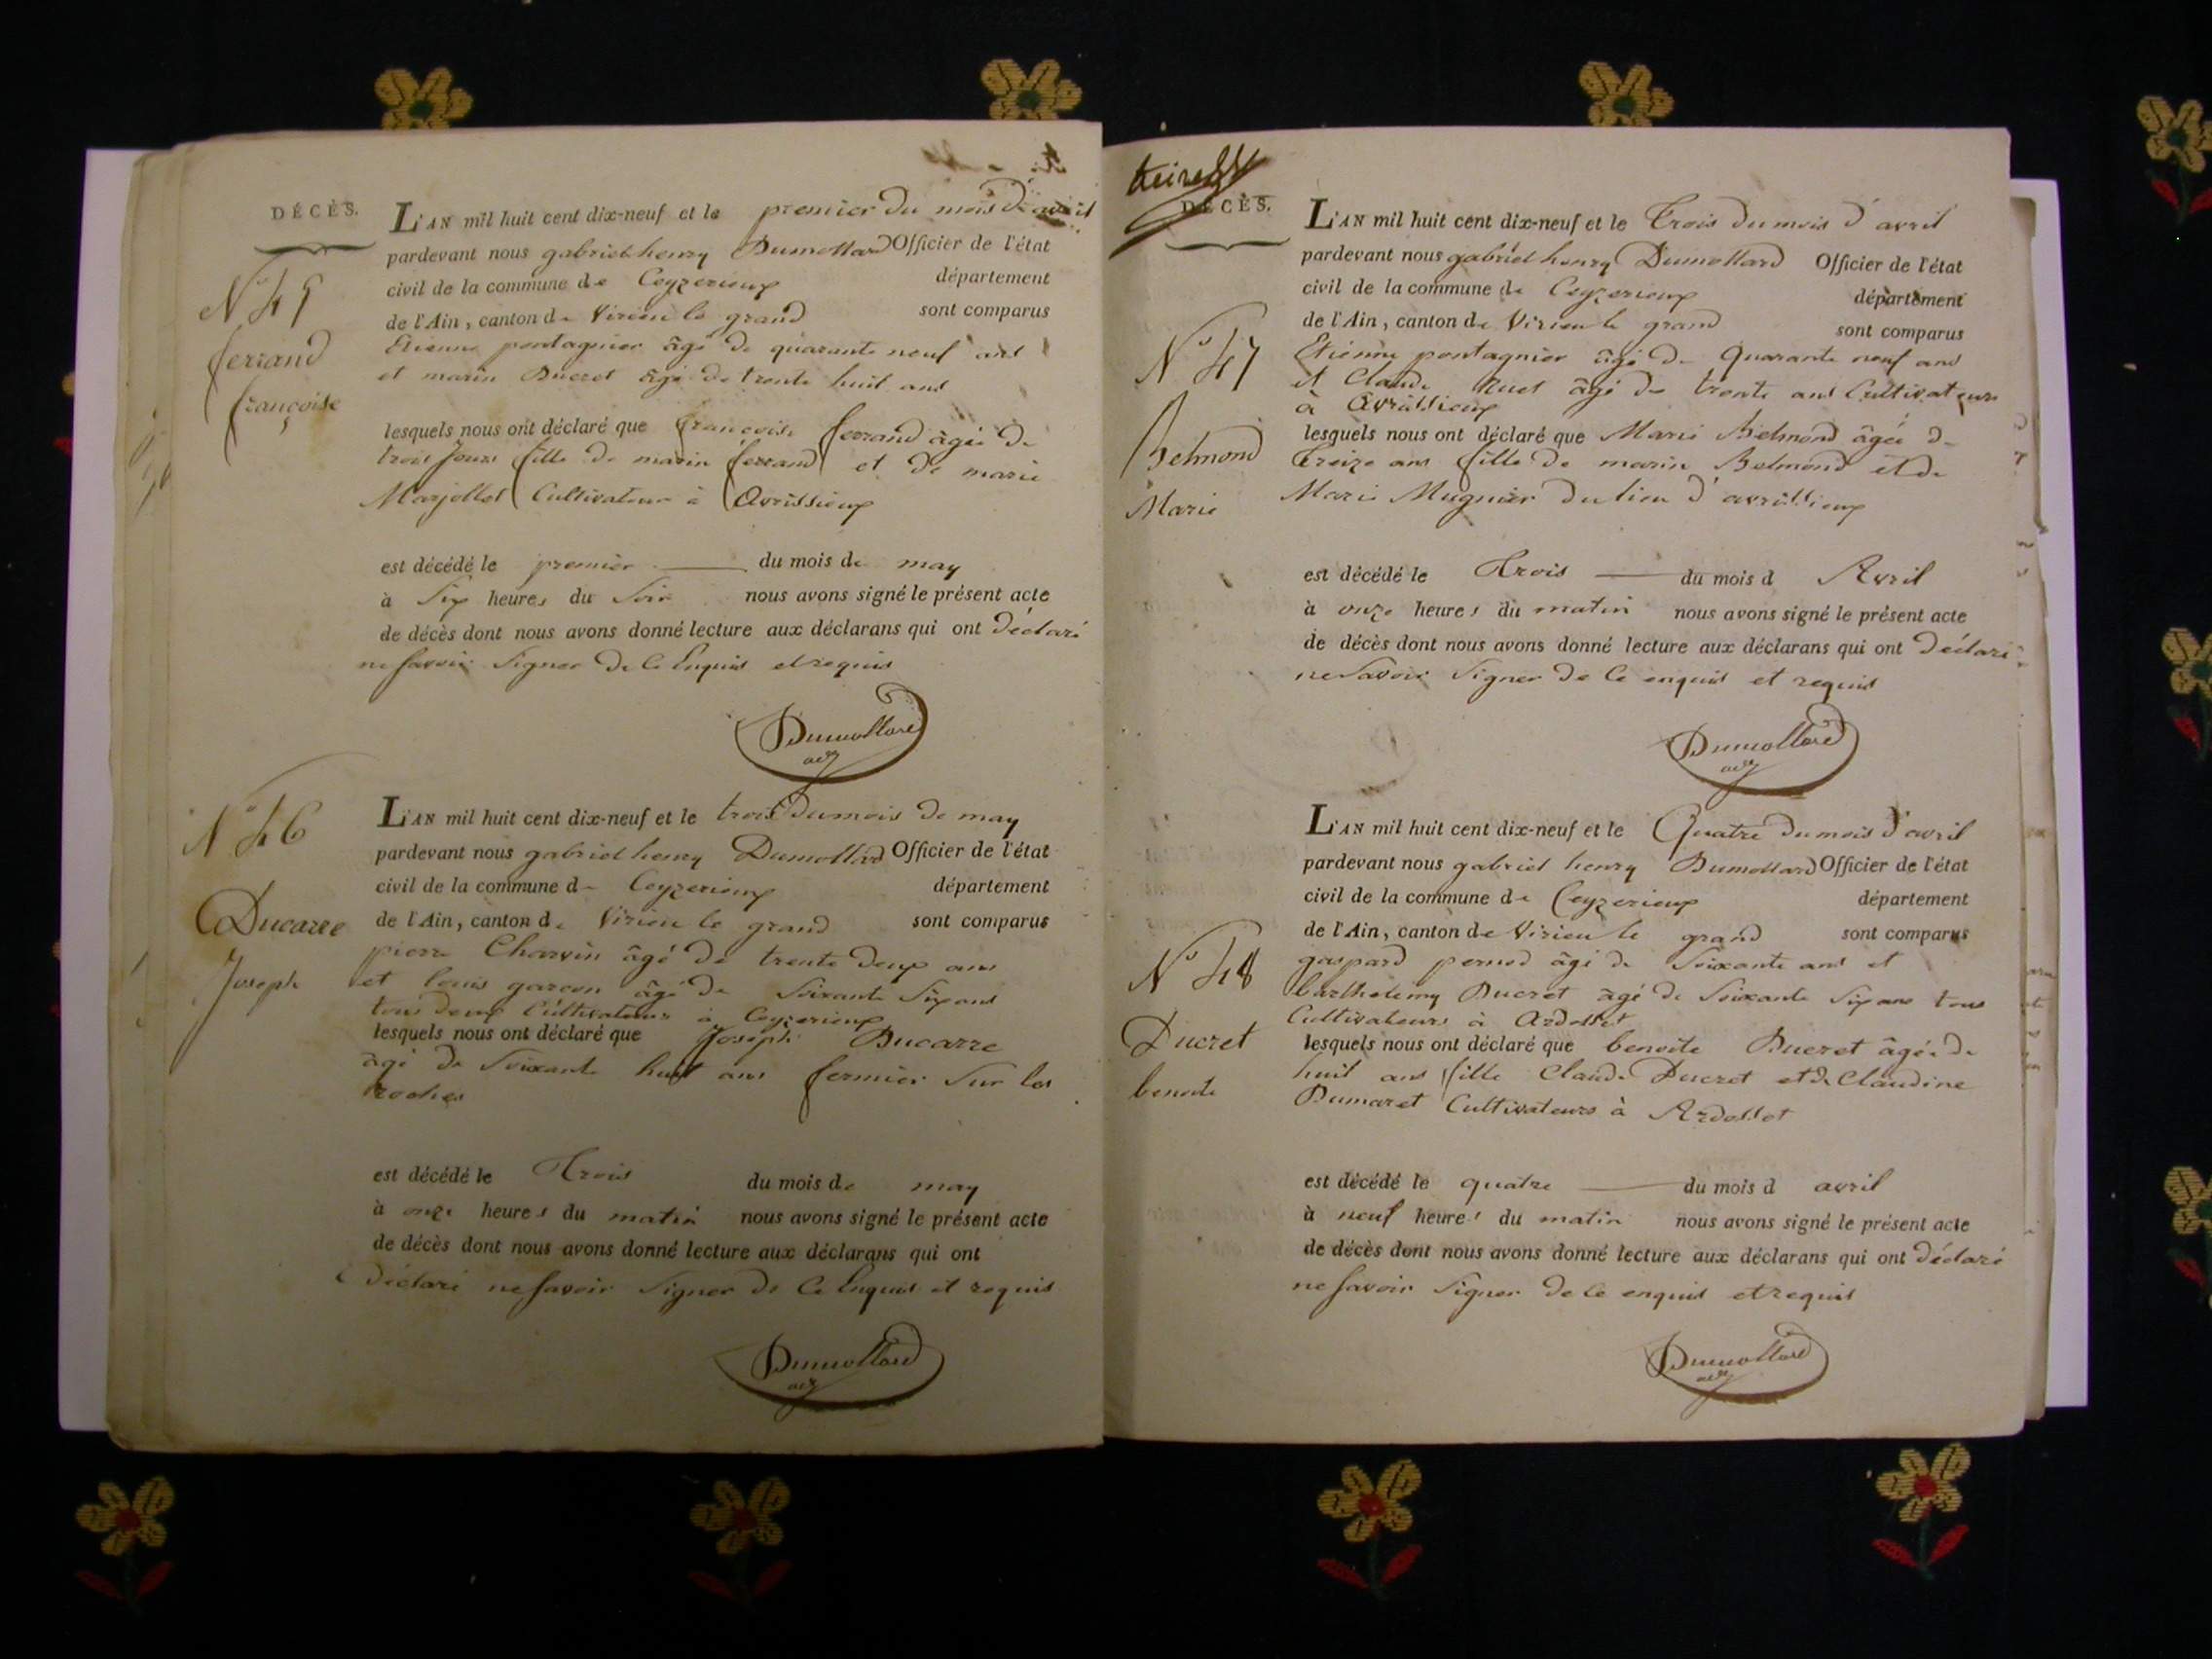 DÉCÈS.
N° 45
ferrand
françoise
L'AN mil huit cent dix-neuf et le premier du mois d'avril
pardevant nous gabriel henry Dumollard Officier de l'état
civil de la commune de Ceyzerieux département
de l'Ain, canton de Virieu le grand sont comparus
Etienne pontagnier âgé de quarante neuf ans
et marin Ducret âgé de trente huit ans
lesquels nous ont déclaré que françoise ferrand âgée de
trois jours fille de marin ferrand et de marie
Marjollet Cultivateur à Avrissieux
est décédé le premier du mois de may
à Six heures du Soir nous avons signé le présent acte
de décès dont nous avons donné lecture aux déclarans qui ont déclaré
ne savoir signer de Ce Enquis et requis
Dumollard
N° 46
Ducarre
Joseph
L'AN mil huit cent dix-neuf et le trois du mois de may
pardevant nous gabriel henry Dumollard Officier de l'état
civil de la commune de Ceyzerieux département
de l'Ain, canton de Virieu le grand sont comparus
pierre Charvin âgé de trente deux ans
et louis garcon âgé de Soixante Six ans
tous deux Cultivateurs à Ceyzerieux
lesquels nous ont déclaré que Joseph Ducarre
âgé de Soixante huit ans fermier Sur les
Roches
est décédé le Trois du mois de may
à onze heures du matin nous avons signé le présent acte
de décès dont nous avons donné lecture aux déclarans qui ont
déclaré ne savoir Signer de Ce Enquis et requis
Dumollard
DÉCÈS.
N° 47
Belmond
Marie
L'AN mil huit cent dix-neuf et le Trois du mois d'avril
pardevant nous gabriel henry Dumollard Officier de l'état
civil de la commune de Ceyzerieux département
de l'Ain, canton de Virieu le grand sont comparus
Etienne pontagnier âgé de Quarante neuf ans
et Claude âgé de trente ans Cultivateurs
à Avrissieux
lesquels nous ont déclaré que Marie Belmond âgée de
Treize ans fille de marin Belmond et de
Marie Mugnier du lieu d'avrissieux
est décédé le Trois du mois d Avril
à onze heures du matin nous avons signé le présent acte
de décès dont nous avons donné lecture aux déclarans qui ont déclaré
ne savoir Signer de Ce enquis et requis
Dumollard
N° 48
Ducret
benoite
L'AN mil huit cent dix-neuf et le Quatre du mois d'avril
pardevant nous gabriel henry Dumollard Officier de l'état
civil de la commune de Ceyzerieux département
de l'Ain, canton de Virieu le grand sont comparus
gaspard pernod âgé de Soixante ans et
barthelemy Ducret âgé de Soixante Six ans tous
Cultivateurs à Ardosset
lesquels nous ont déclaré que benoite Ducret âgée de
huit ans fille Claude Ducret et de Claudine
Dumaret Cultivateurs à Ardosset
est décédé le quatre du mois d avril
à neuf heures du matin nous avons signé le présent acte
de décès dont nous avons donné lecture aux déclarans qui ont déclaré
ne savoir Signer de Ce enquis et requis
Dumollard